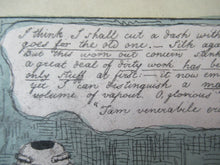 I think I shall cut a dash with
goes for the old one.— Silk aga
But this worn out concern
a great deal of dirty work has be
only stuff at first:— it now em
yet I can distinguish a ma
volume of vapour. O, glorious
"Jam venerabile